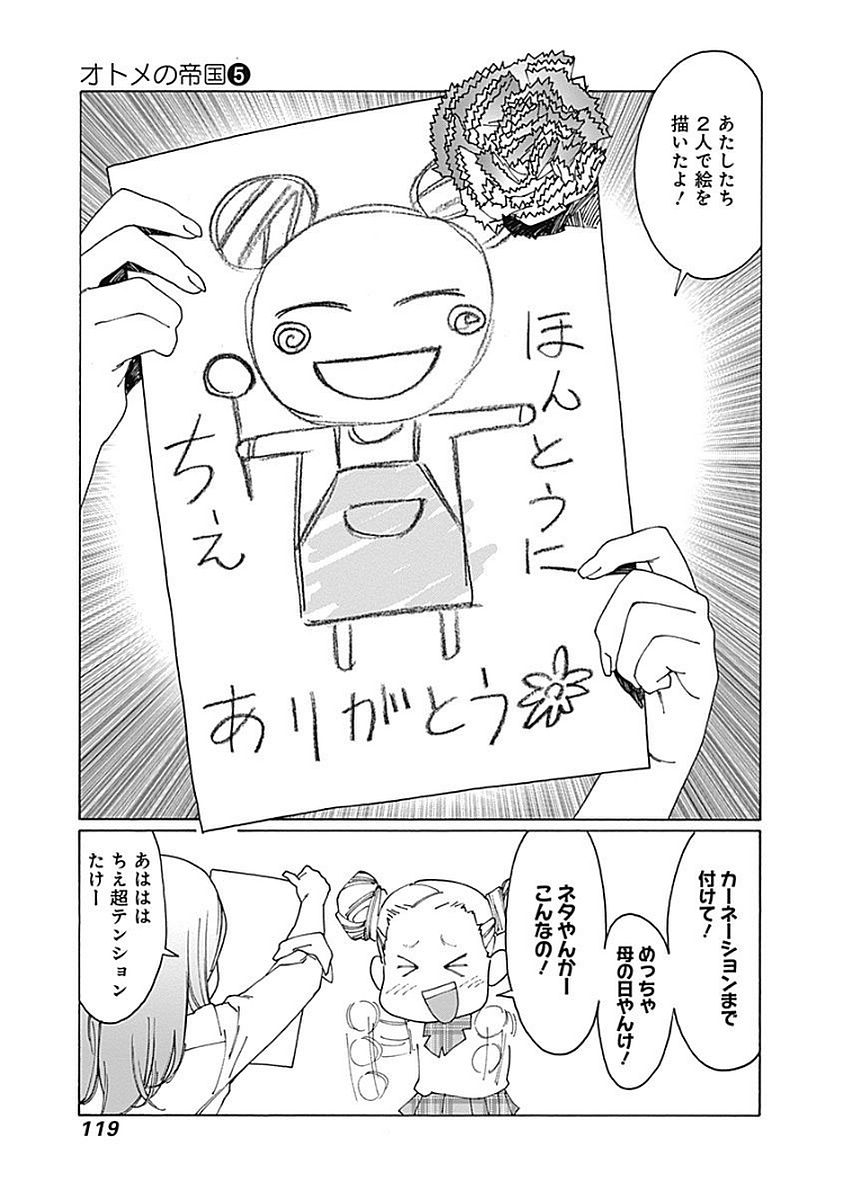 オトメの帝国❺
あたしたち
2人で絵を
描いたよ！
ほんとうに
ちえ
ありがとう
カーネーションまで
付けて！
めっちゃ
母の日やんけ！
ネタやんかー
こんなの！
あははは
ちえ超テンション
たけー
119